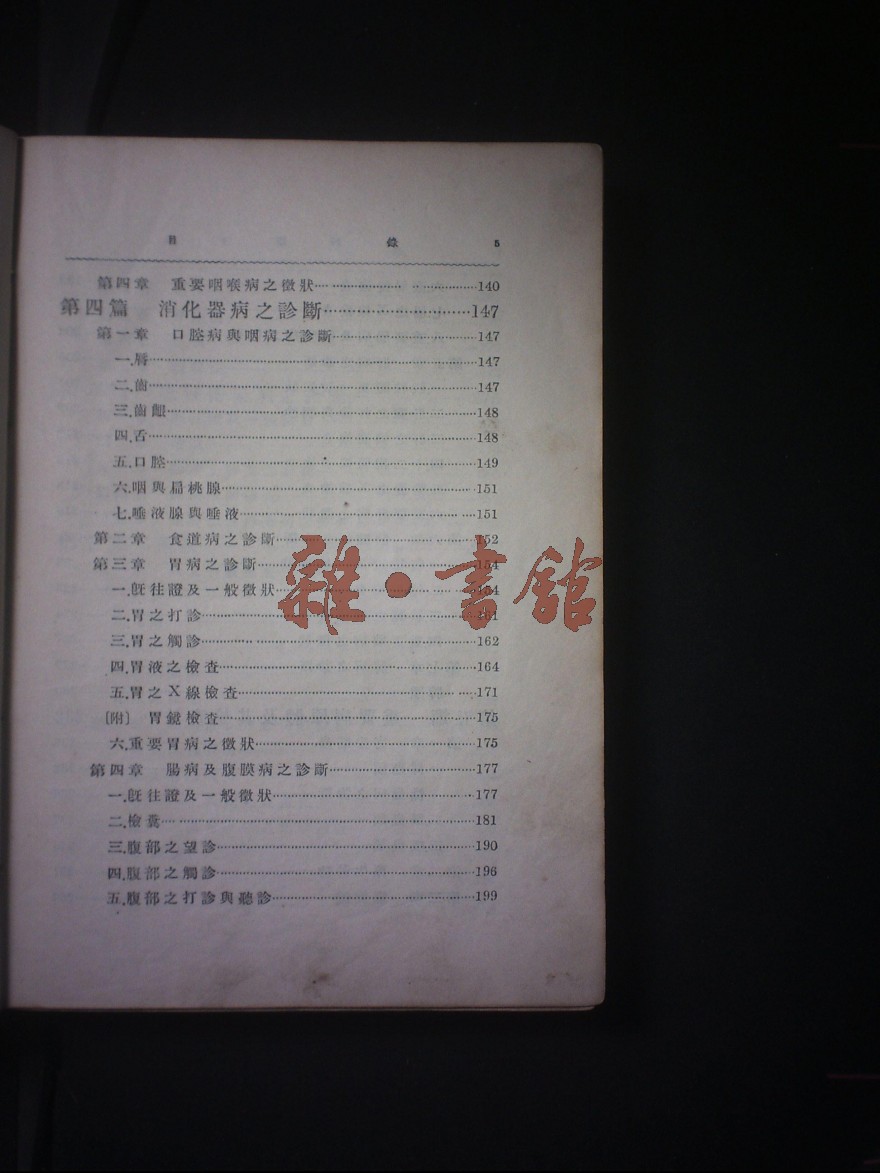 目 錄 5
第四章 重要咽喉病之徵狀························140
第四篇 消化器病之診斷························147
第一章 口腔病與咽病之診斷························147
一.唇························147
二.齒························147
三.齒齦························148
四.舌························148
五.口腔························149
六.咽與扁桃腺························151
七.唾液腺與唾液························151
第二章 食道病之診斷························152
第三章 胃病之診斷························154
一.旣往證及一般徵狀························154
二.胃之打診························161
三.胃之觸診························162
四.胃液之檢查························164
五.胃之X線檢查························171
〔附〕 胃鏡檢查························175
六.重要胃病之徵狀························175
第四章 腸病及腹膜病之診斷························177
一.旣往證及一般徵狀························177
二.檢糞························181
三.腹部之望診························190
四.腹部之觸診························196
五.腹部之打診與聽診························199
雜·書館